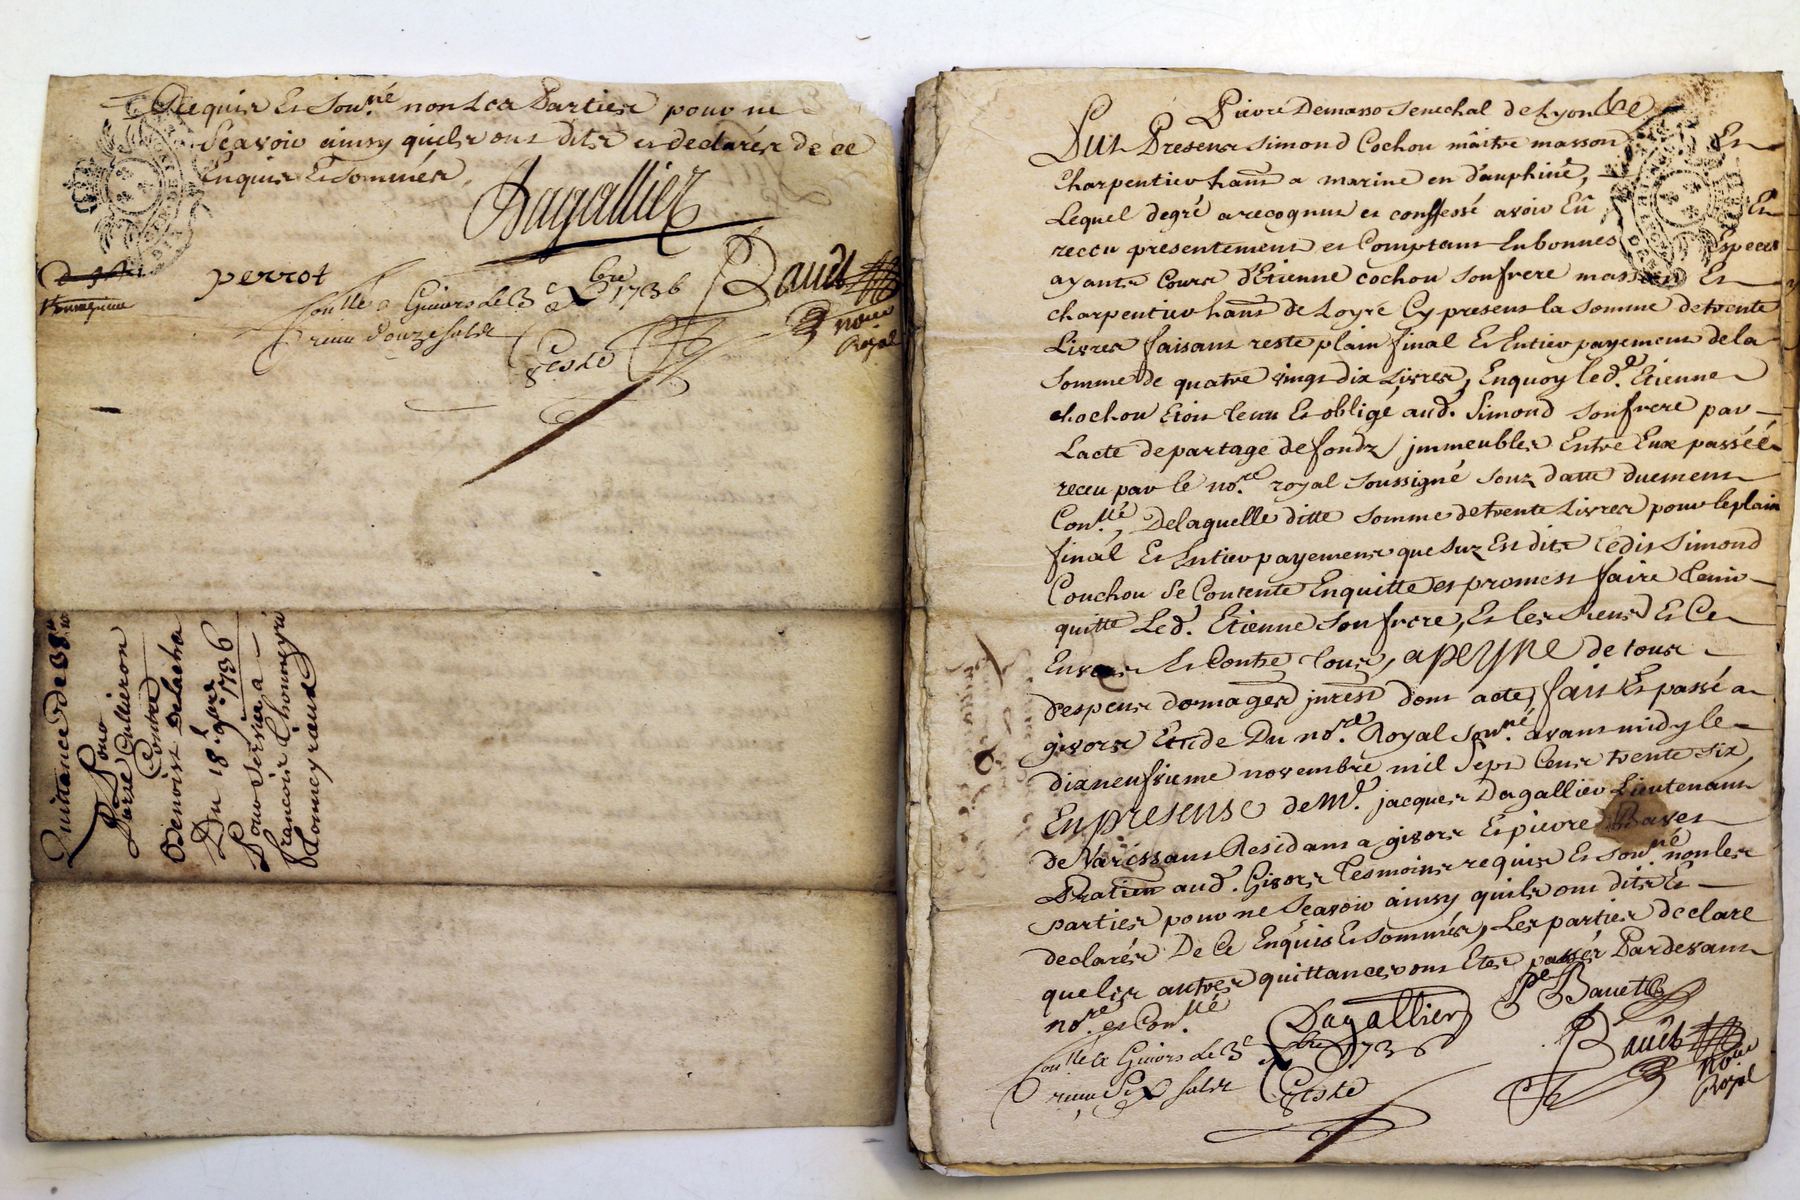 Requis et sou.né non les Parties pour ne
Scavoir ainsy quils ont dits et declarés de ce
Enquis et sommés
Dagallier
perrot
Baudt
nore
Royal
Con.lle a Givors le 3e Xbre 1736
recu douze sols
Geste
Quittance de 38 lt
Pour
Pierre Cullieron
Contre
Benoist Delaetra
Du 18e 9bre 1736
Pour servir a
francois Thomeyrö
Lomeyraud
Pierre Demasso Senechal de Lyon
Fut Present Simond Cochou maitre masson Et
Charpentier hant a marine en d'auphiné,
Lequel degré a recognu et conffessé avoir Eü Et
receu presentement et Comptant En bonnes Especes
ayant Cours d'Etienne cochou son frere masson Et
charpentier hant de Loyre Cy present la somme de trente
Livres faisant reste plain final Et Entier payement de la
somme de quatre vingt dix Livres, Enquoy led. Etienne
chochou Etoit tenu Et obligé aud. Simond son frere par
Lacte de partage de fondz immeubles Entre Eux passéé
receu par le no.re royal soussigné souz datte duement
Con.llé, De laquelle ditte somme de trente Livres pour le plain
final Et Entier payement que suz Est dit ledit Simond
Couchou Se Contente Enquitte et promest faire tenir
quitte Led. Etienne son frere, Et les siens Et Ce
Envers Et Contre tous, a peyne de tous
despens domages jntest dont acte, fait Et passé a
givors Etude Du no.re Royal sou.né avant midy le
dixneufvieme novembre mil sept cent trente six
En presense de Mr. jacques Dagallier Lieutenant
de Varissant Residant a givors Et pierre Bavet
Praticien aud. Givors tesmoins requis Et sou.né non les
parties pour ne Scavoir ainsy quils ont dits Et
declarés De Ce Enquis Et sommés, Les parties declare
que les autres quittances ont Etes passés Pardevant
no.re et Con.llé
Pe Bauet
Dagallier
Baudt
nore
Royal
Con.lle a Givors le 3e Xbre 1736
recu Six sols
Geste